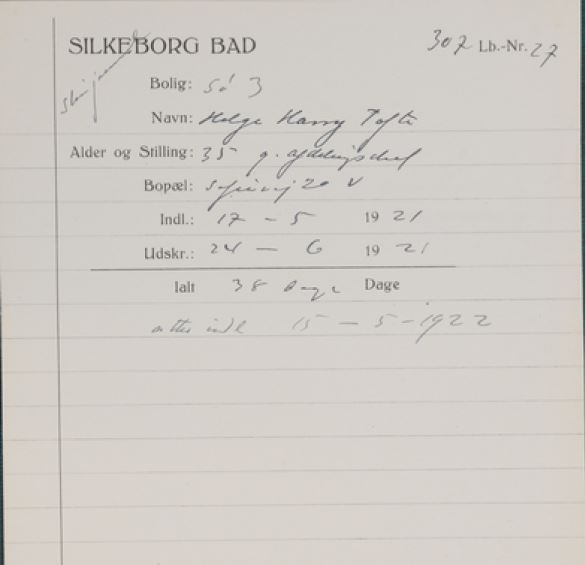 SILKEBORG BAD
307 Lb.-Nr. 27
Bolig: Sö 3
Navn: Helge Harry Tofte
Alder og Stilling: 35 g. afdelingschef
Bopæl: 20 V
Indl.: 17 - 5 1921
Udskr.: 24 - 6 1921
Ialt 38 Dage Dage
atter indl 15 - 5 - 1922